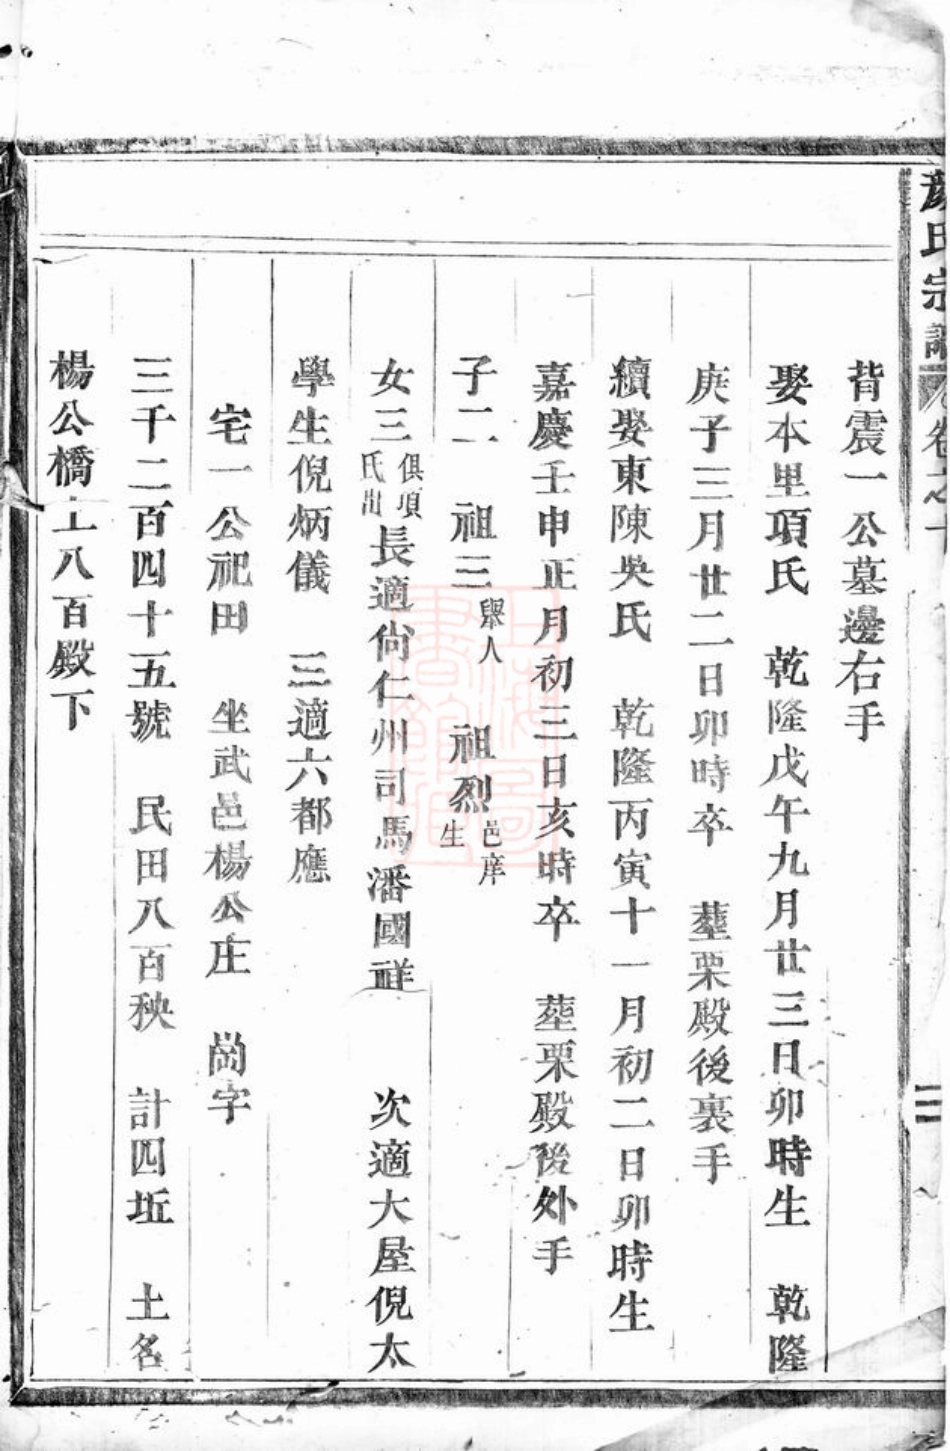 顏氏宗譜 卷之十 二
背震一公墓邊右手
娶本里項氏 乾隆戊午九月廿三日卯時生 乾隆
庚子三月廿二日卯時卒 塟栗殿後裏手
續娶東陳吳氏 乾隆丙寅十一月初二日卯時生
嘉慶壬申正月初三日亥時卒 塟栗殿後外手
子二 祖三舉人 祖烈邑庠生
女三俱項氏出長適尚仁州司馬潘國祥 次適大屋倪太
學生倪炳儀 三適六都應
宅一公祀田 坐武邑楊公庄 崗字
三千二百四十五號 民田八百秧 計四坵 土名
楊公橋上八百殿下
上海圖書館藏